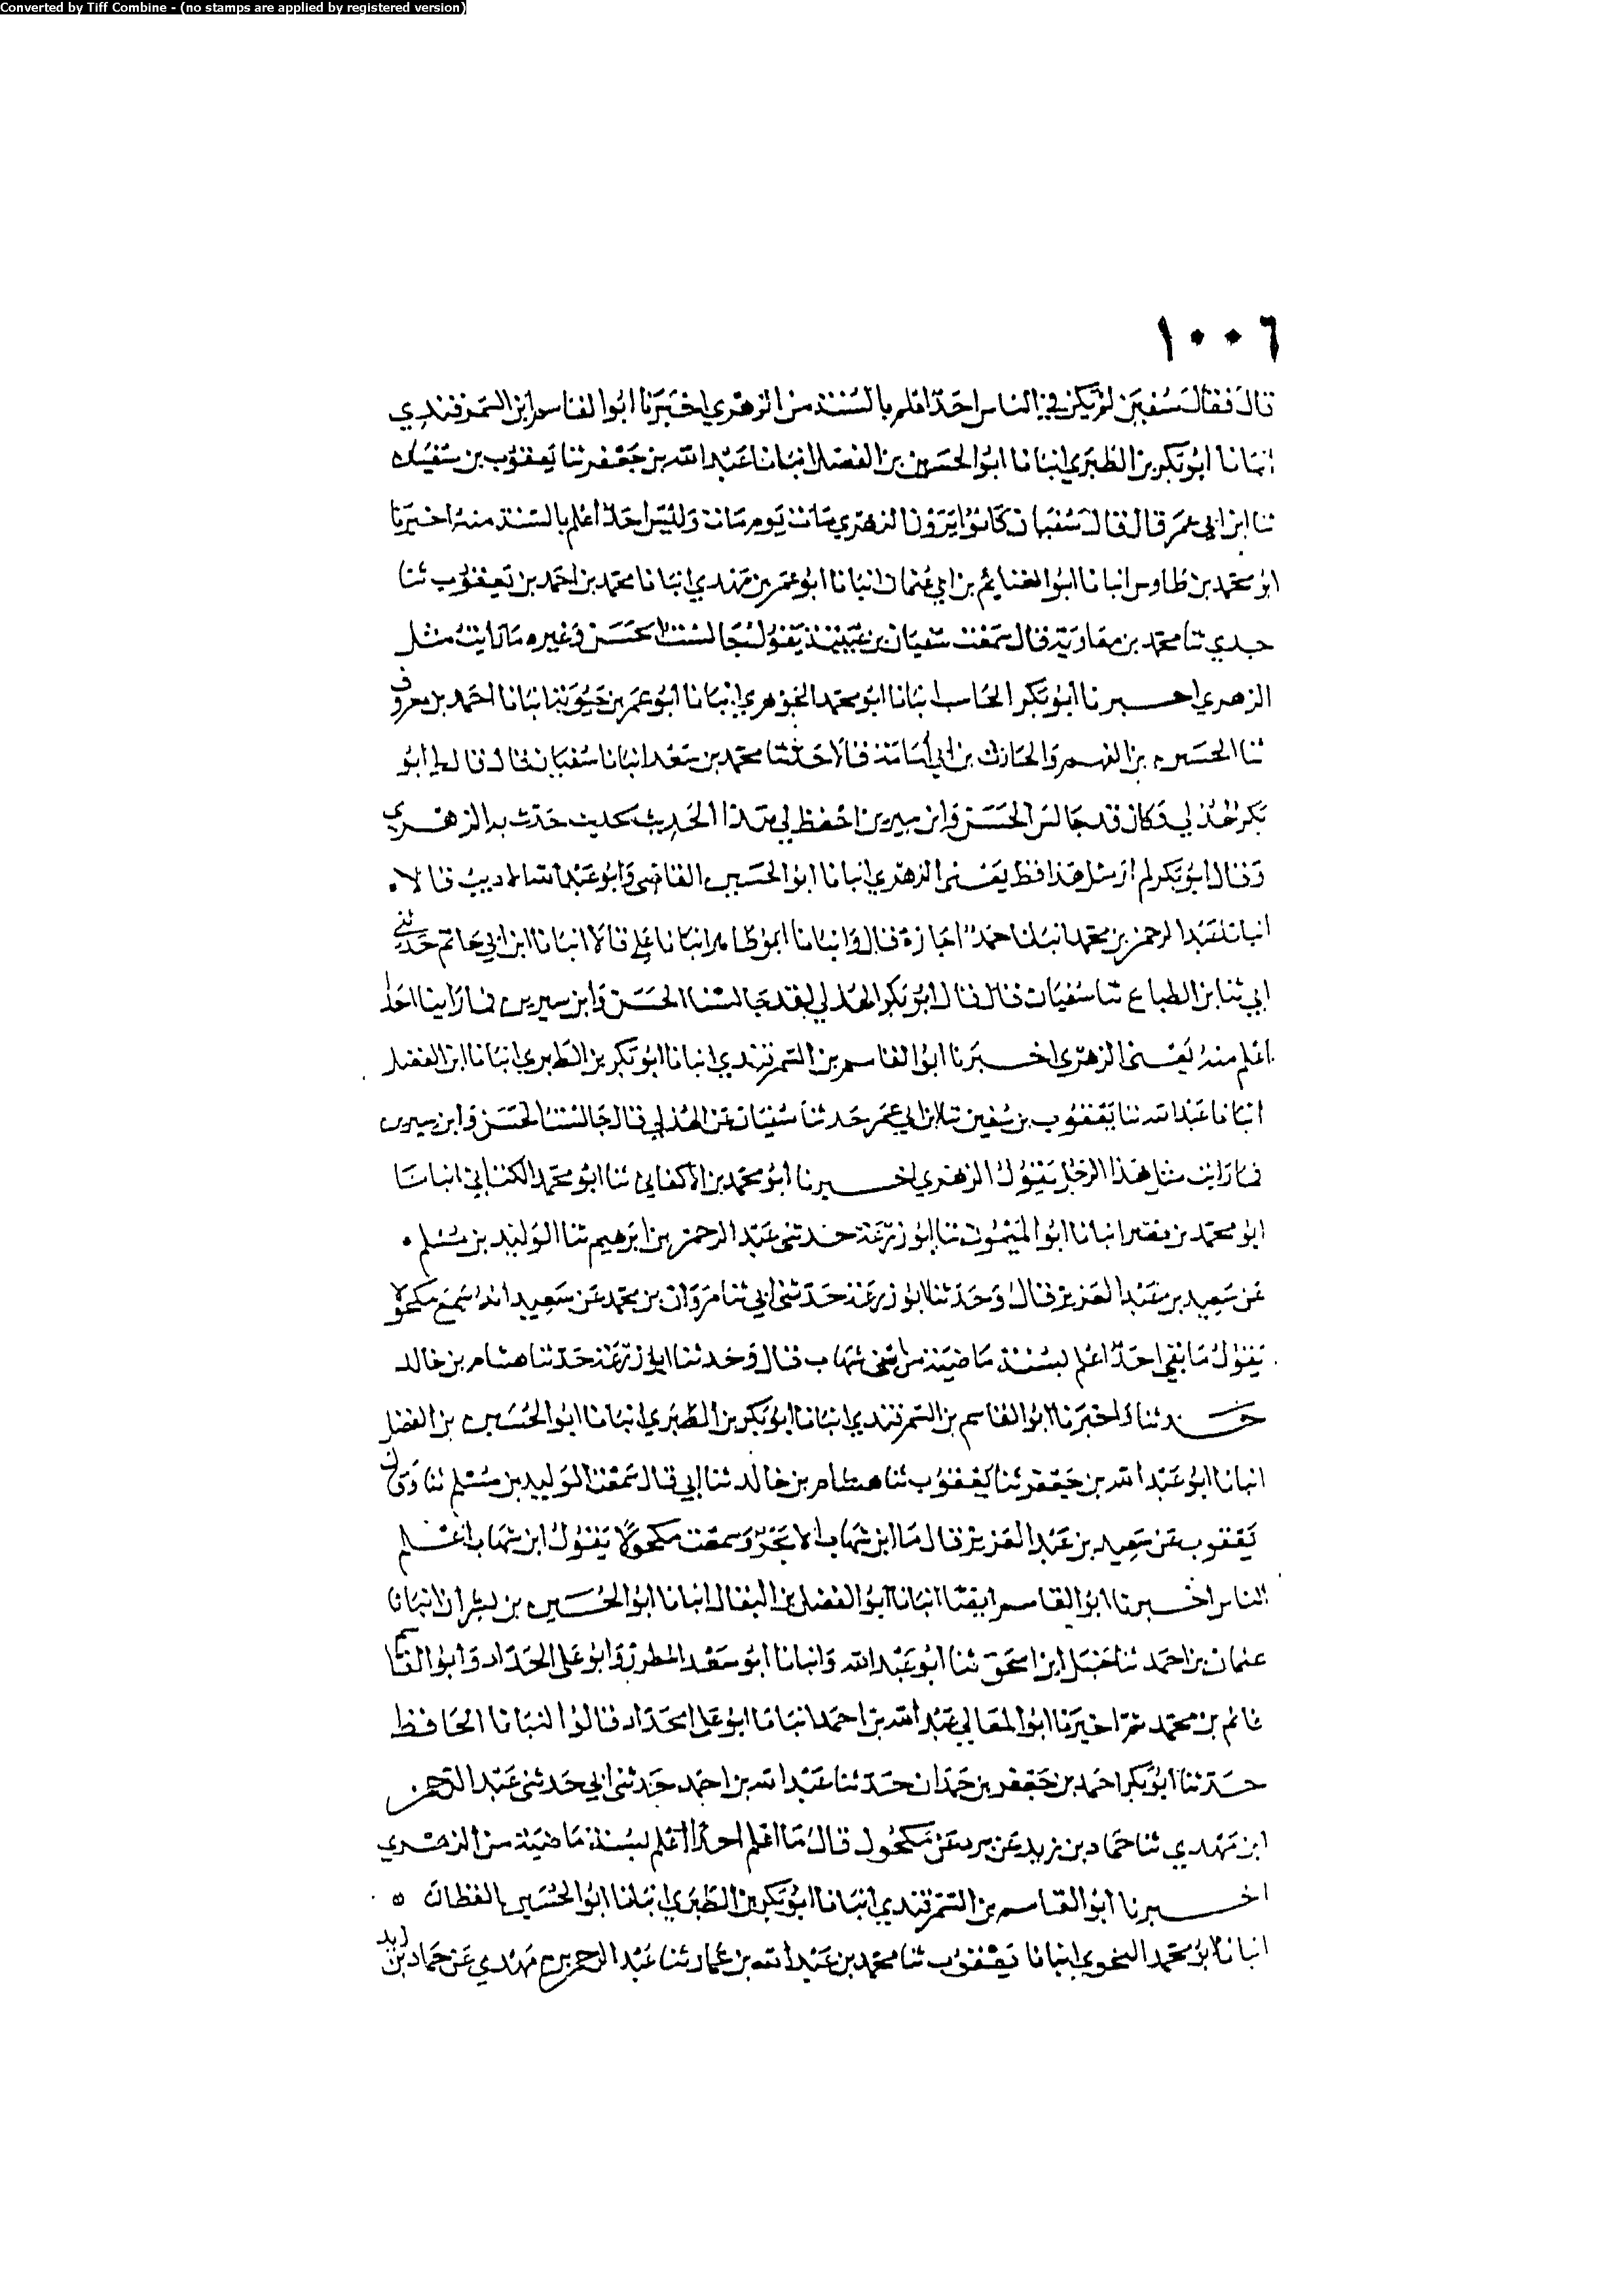 Converted by Tiff Combine - (no stamps are applied by registered version)
١٠٠٦
قال فقال سفين لم يكن في الناس احد اعلم بالسنة من الزهري اخبرنا ابوا القاسم ابن السمرقندي
انبانا ابو بكر بن الطبري انبانا ابوا الحسين بن الفضل انبانا عبد الله بن جعفر ثنا يعقوب بن سفيان
ثنا ابن ابي عمر قال قال سفيان كانوا يرون الزهري مات يوم مات وليس احد اعلم بالسنة منه اخبرنا
ابو محمد بن طاوس انبانا ابوا الغنايم بن ابي عثمان انبانا ابو عمر بن مهدي انبانا محمد بن احمد بن يعقوب ثنا
جدي ثنا محمد بن معاوية قال سمعت سفيان بن عيينة يقول جالست الحسن وغيره ما رايت مثل
الزهري اخبرنا ابو بكر الحاسب انبانا ابو محمد الجوهري انبانا ابو عمر بن حيوية انبانا احمد بن معروف
ثنا الحسين بن الفهم والحارث بن ابي أسامة قالا حدثنا محمد بن سعد انبانا سفيان قال قال لي ابو
بكر الهذلي وكان قد جالس الحسن وابن سيرين احفظ لي هذا الحديث بحديث حدث به الزهري
وقال ابو بكر لم ار مثل هذا قط يعني الزهري انبانا ابوا الحسين القاضي وابو عبد الله الاديب قالا ه
انبانا عبد الرحمن بن محمد انبانا حمد اجازة قال وانبانا ابو طاهر انبانا علي قالا انبانا ابن ابي حاتم حدثني
ابي ثنا بن الطباع ثنا سفيان قال قال ابو بكر الهذلي لقد جالسنا الحسن وابن سيرين فما راينا احدا
اعلم منه يعني الزهري اخبرنا ابوا القاسم بن السمرقندي انبانا ابو بكر بن الطبري انبانا ابن الفضل
انبانا عبد الله ثنا يعقوب بن سفين ثنا ابن ابي عمر حدثنا سفيان عن الهذلي قال جالست الحسن وابن سيرين
فما رايت مثل هذا الرجل يقول الزهري اخبرنا ابو محمد بن الاكفاني ثنا ابو محمد الكتاني انبانا
ابو محمد بن نصر انبانا ابوا الميمون ثنا ابو زرعة حدثني عبد الرحمن بن ابرهيم ثنا الوليد بن مسلم ه
عن سعيد بن عبد العزيز قال وحدثنا ابو زرعة حدثني ابي ثنا مروان بن محمد عن سعيد انه سمع مكحولا
يقول ما بقي احد اعلم بسنة ماضية من ابن شهاب قال وحدثنا ابو زرعة حدثنا هشام بن خالد
حدثنا واخبرنا ابوا القاسم بن السمرقندي انبانا ابو بكر بن الطبري انبانا ابوا الحسين بن الفضل
انبانا ابو عبد الله بن جعفر ثنا يعقوب ثنا هشام بن خالد ثنا ابي قال سمعت الوليد بن مسلم
يعقوب عن سعيد بن عبد العزيز قال ما ابن شهاب الا بحر وسمعت مكحولا يقول ابن شهاب اعلم
الناس اخبرنا ابوا القاسم ايضا انبانا ابوا الفضل بن البقال انبانا ابوا الحسين بن بشران انبانا
عثمان بن احمد ثنا حنبل ابن اسحق ثنا ابو عبد الله وانبانا ابو سعد المطرز وابو على الحداد وابوا القاسم
غانم بن محمد ثم اخبرنا ابوا المعالي عبد الله بن احمد انبانا ابو على الحداد قالوا انبانا الحافظ
حدثنا ابو بكر احمد بن جعفر بن حمدان حدثنا عبد الله بن احمد حدثني ابي حدثني عبد الرحمن
ابن مهدي ثنا حماد بن زيد عن برد عن مكحول قال ما اعلم احدا اعلم بسنة ماضية من الزهري
اخبرنا ابوا القاسم بن السمرقندي انبانا ابو بكر بن الطبري انبانا ابوا الحسين القطان ه
انبانا ابو محمد النحوي انبانا يعقوب ثنا محمد بن عبد الله بن عمار ثنا عبد الرحمن بن مهدي عن حماد بن زيد